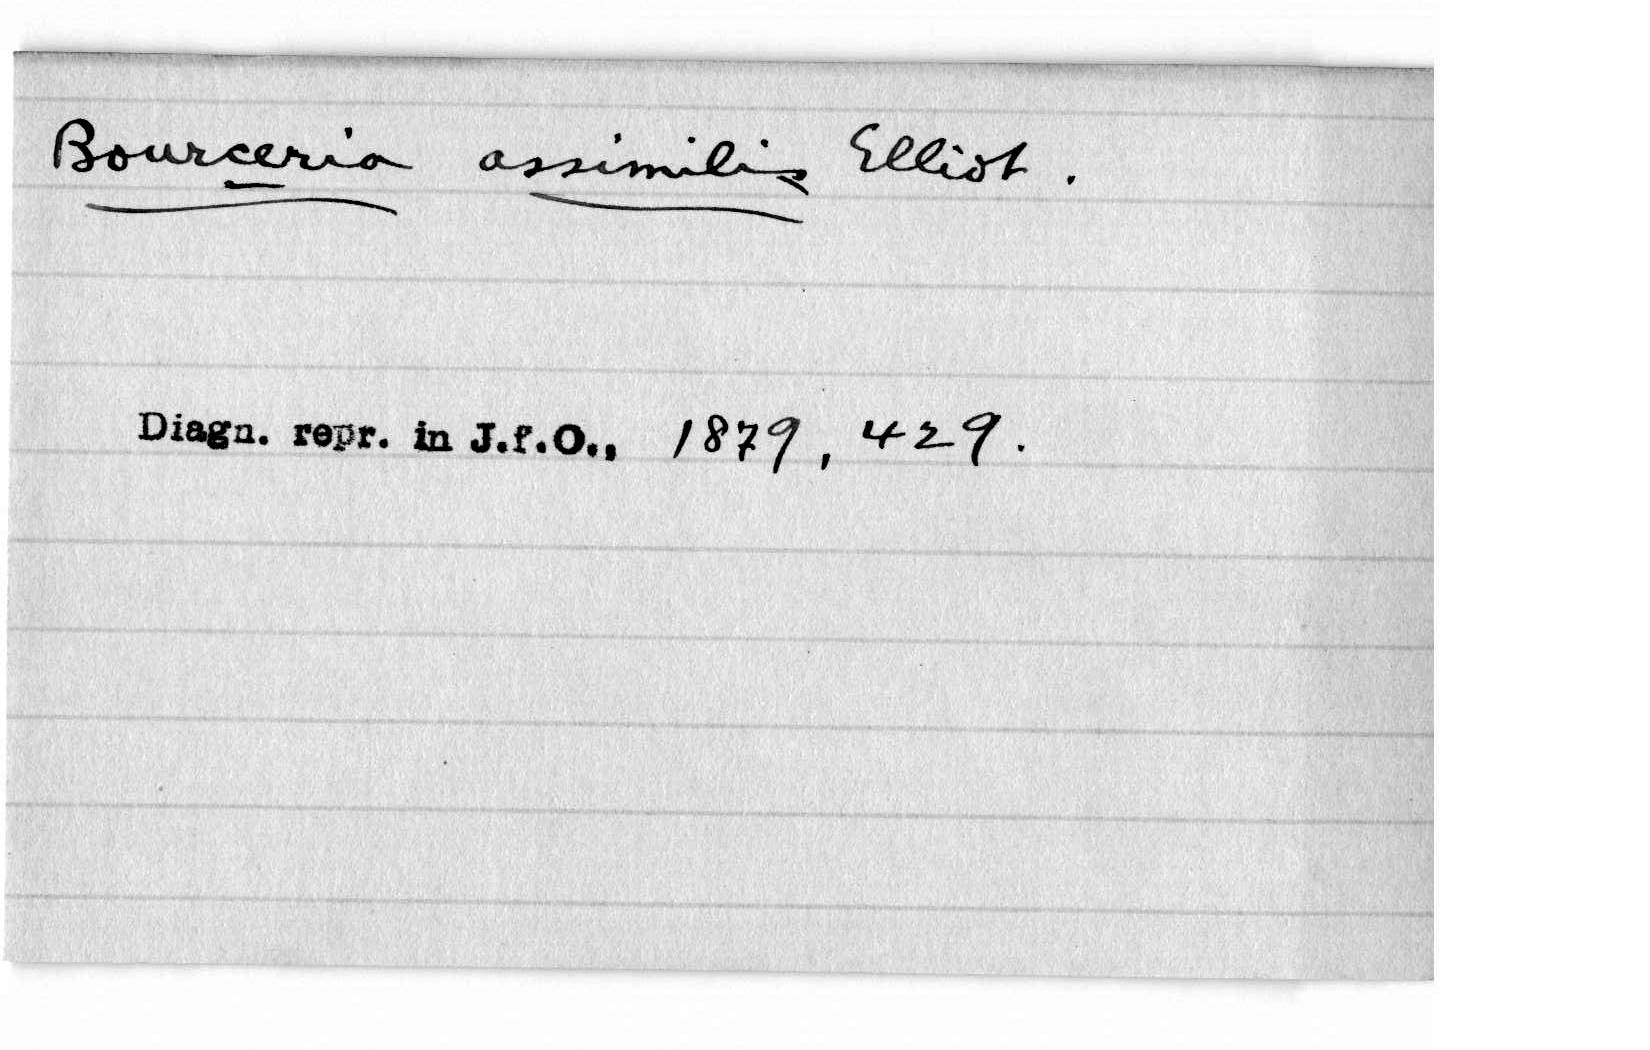 Bourceria assimilis Elliot.
Diagn. repr. in J.f.O., 1879, 429.